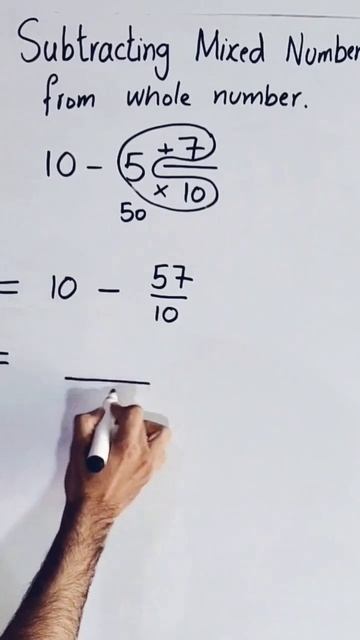 Subtracting Mixed Number
from whole number.
10 - 5 + 7
× 10
50
= 10 - 57
10
=